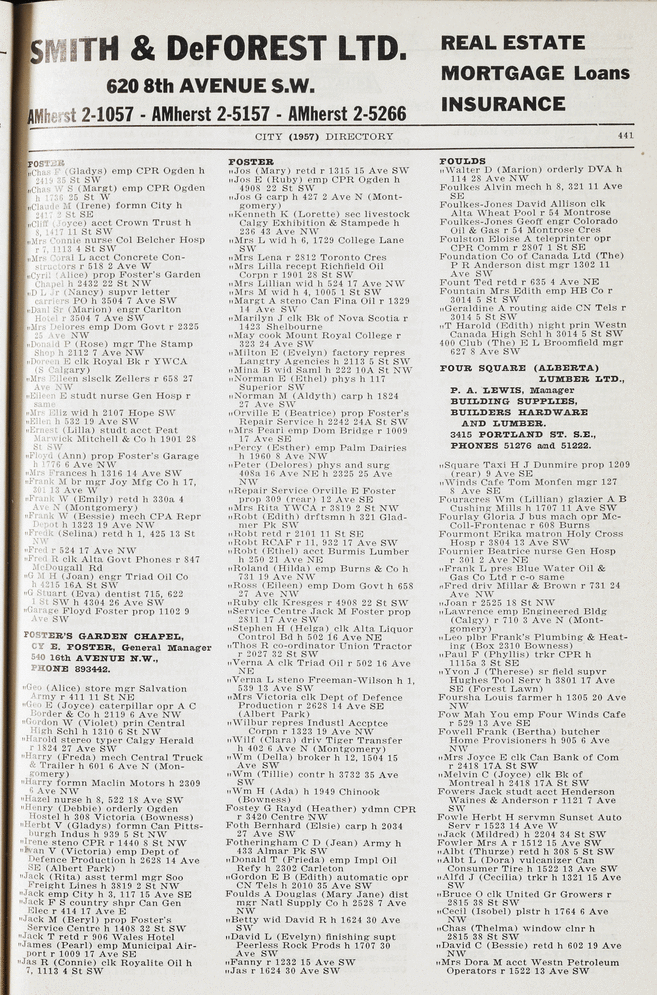 SMITH & DeFOREST LTD.
620 8th AVENUE S.W.
AMherst 2-1057 - AMherst 2-5157 - AMherst 2-5266
REAL ESTATE
MORTGAGE Loans
INSURANCE
CITY (1957) DIRECTORY
441
FOSTER
"Chas F (Gladys) emp CPR Ogden h
2419 35 St SW
"Chas W S (Margt) emp CPR Ogden
h 1736 25 St W
"Claude M (Irene) formn City h
2417 2 St SE
"Cliff (Joyce) acct Crown Trust h
8, 1417 11 St SW
"Mrs Connie nurse Col Belcher Hosp
r 7, 1113 4 St SW
"Mrs Coral L acct Concrete Con-
structors r 518 2 Ave W
"Cyril (Alice) prop Foster's Garden
Chapel h 2432 22 St NW
"D L Jr (Nancy) supvr letter
carriers PO h 3504 7 Ave SW
"Danl Sr (Marion) engr Carlton
Hotel r 3504 7 Ave SW
"Mrs Delores emp Dom Govt r 2325
25 Ave NW
"Donald P (Rose) mgr The Stamp
Shop h 2112 7 Ave NW
"Doreen E clk Royal Bk r YWCA
(S Calgary)
"Mrs Eileen slsclk Zellers r 658 27
Ave NW
"Eileen E studt nurse Gen Hosp r
same
"Mrs Eliz wid h 2107 Hope SW
"Ellen h 532 19 Ave SW
"Ernest (Lilla) studt acct Peat
Marwick Mitchell & Co h 1901 28
St SW
"Floyd (Ann) prop Foster's Garage
h 1776 6 Ave NW
"Mrs Frances h 1316 14 Ave SW
"Frank M br mgr Joy Mfg Co h 17,
301 13 Ave W
"Frank W (Emily) retd h 330a 4
Ave N (Montgomery)
"Frank W (Bessie) mech CPA Repr
Depot h 1323 19 Ave NW
"Fredk (Selina) retd h 1, 425 13 St
NW
"Fred r 524 17 Ave NW
"Fred R clk Alta Govt Phones r 847
McDougall Rd
"G M H (Joan) engr Triad Oil Co
h 1615 16A St SW
"G Stuart (Eva) dentist 715, 622
1 St SW h 4304 26 Ave SW
"Garage Floyd Foster prop 1102 9
Ave SW
FOSTER'S GARDEN CHAPEL,
CY E. FOSTER, General Manager
540 16th AVENUE N.W.,
PHONE 893442.
"Geo (Alice) store mgr Salvation
Army r 411 11 St NE
"Geo E (Joyce) caterpillar opr A C
Border & Co h 2119 6 Ave NW
"Gordon W (Violet) prin Central
High Schl h 1310 6 St NW
"Harold stereo typer Calgy Herald
r 1824 27 Ave SW
"Harry (Freda) mech Central Truck
& Trailer h 601 6 Ave N (Mon-
gomery)
"Harry formn Maclin Motors h 2309
6 Ave NW
"Hazel nurse h 8, 522 18 Ave SW
"Henry (Debbie) orderly Ogden
Hostel h 308 Victoria (Bowness)
"Herbt V (Gladys) formn Can Pitts-
burgh Indus h 939 5 St NW
"Irene steno CPR r 1440 8 St NW
"Ivan V (Victoria) emp Dept of
Defence Production h 2628 14 Ave
SE (Albert Park)
"Jack (Rita) asst terml mgr Soo
Freight Lines h 3819 2 St NW
"Jack emp City h 3, 117 15 Ave SE
"Jack F S country shpr Can Gen
Elec r 414 17 Ave E
"Jack M (Beryl) prop Foster's
Service Centre h 1408 32 St SW
"Jack T retd r 906 Wales Hotel
"James (Pearl) emp Municipal Air-
port r 1009 17 Ave SE
"Jas R (Connie) clk Royalite Oil h
7, 1113 4 St SW
FOSTER
"Jos (Mary) retd r 1315 15 Ave SW
"Jos E (Ruby) emp CPR Ogden h
4908 22 St SW
"Jos G carp h 427 2 Ave N (Mont-
gomery)
"Kenneth K (Lorette) sec livestock
Calgy Exhibition & Stampede h
236 43 Ave NW
"Mrs L wid h 6, 1729 College Lane
SW
"Mrs Lena r 2812 Toronto Cres
"Mrs Lilla recept Richfield Oil
Corpn r 1901 28 St SW
"Mrs Lillian wid h 524 17 Ave NW
"Mrs M wid h 4, 1005 1 St SW
"Margt A steno Can Fina Oil r 1329
14 Ave SW
"Marilyn J clk Bk of Nova Scotia r
1423 Shelbourne
"May cook Mount Royal College r
323 24 Ave SW
"Milton E (Evelyn) factory repres
Langtry Agencies h 2113 5 St SW
"Mina B wid Saml h 222 10A St NW
"Norman E (Ethel) phys h 117
Superior SW
"Norman M (Aldyth) carp h 1824
27 Ave SW
"Orville E (Beatrice) prop Foster's
Repair Service h 2242 24A St SW
"Mrs Pearl emp Dom Bridge r 1009
17 Ave SE
"Percy (Esther) emp Palm Dairies
h 1960 8 Ave NW
"Peter (Delores) phys and surg
408a 16 Ave NE h 2325 25 Ave
NW
"Repair Service Orville E Foster
prop 309 (rear) 12 Ave SE
"Mrs Rita YWCA r 3819 2 St NW
"Robt (Edith) drftsmn h 321 Glad-
mer Pk SW
"Robt retd r 2101 11 St SE
"Robt RCAF r 11, 932 17 Ave SW
"Robt (Ethel) acct Burmis Lumber
h 250 21 Ave NE
"Roland (Hilda) emp Burns & Co h
731 19 Ave NW
"Ross (Eileen) emp Dom Govt h 658
27 Ave NW
"Ruby clk Kresges r 4908 22 St SW
"Service Centre Jack M Foster prop
2811 17 Ave SW
"Stephen H (Helga) clk Alta Liquor
Control Bd h 502 16 Ave NE
"Thos R co-ordinator Union Tractor
r 2027 32 St SW
"Verna A clk Triad Oil r 502 16 Ave
NE
"Verna L steno Freeman-Wilson h 1,
539 13 Ave SW
"Mrs Victoria clk Dept of Defence
Production r 2628 14 Ave SE
(Albert Park)
"Wilbur repres Industl Accptce
Corpn r 1323 19 Ave NW
"Wilf (Clara) driv Tiger Transfer
h 402 6 Ave N (Montgomery)
"Wm (Della) broker h 12, 1504 15
Ave SW
"Wm (Tillie) contr h 3732 35 Ave
SW
"Wm H (Ada) h 1949 Chinook
(Bowness)
Fostey G Rayd (Heather) ydmn CPR
r 3420 Centre NW
Foth Bernhard (Elsie) carp h 2034
27 Ave SW
Fotheringham C D (Jean) Army h
433 Almar Pk SW
"Donald T (Frieda) emp Impl Oil
Refy h 2302 Carleton
"Gordon E B (Edith) automatic opr
CN Tels h 2010 35 Ave SW
Foulds A Douglas (Mary Jane) dist
mgr Natl Supply Co h 2528 7 Ave
NW
"Betty wid David R h 1624 30 Ave
SW
"David L (Evelyn) finishing supt
Peerless Rock Prods h 1707 30
Ave SW
"Fanny r 1232 15 Ave SW
"Jas r 1624 30 Ave SW
FOULDS
"Walter D (Marion) orderly DVA h
114 28 Ave NW
Foulkes Alvin mech h 8, 321 11 Ave
SE
Foulkes-Jones David Allison clk
Alta Wheat Pool r 54 Montrose
Foulkes-Jones Geoff engr Colorado
Oil & Gas r 54 Montrose Cres
Foulston Eloise A teleprinter opr
CPR Comm r 2807 1 St SE
Foundation Co of Canada Ltd (The)
P R Anderson dist mgr 1302 11
Ave SW
Fount Ted retd r 635 4 Ave NE
Fountain Mrs Edith emp HB Co r
3014 5 St SW
"Geraldine A routing aide CN Tels r
3014 5 St SW
"T Harold (Edith) night prin Westn
Canada High Schl h 3014 5 St SW
400 Club (The) E L Broomfield mgr
627 8 Ave SW
FOUR SQUARE (ALBERTA)
LUMBER LTD.,
P. A. LEWIS, Manager
BUILDING SUPPLIES,
BUILDERS HARDWARE
AND LUMBER.
3415 PORTLAND ST. S.E.,
PHONES 51276 and 51222.
"Square Taxi H J Dunmire prop 1209
(rear) 9 Ave SE
"Winds Cafe Tom Monfen mgr 127
8 Ave SE
Fouracres Wm (Lillian) glazier A B
Cushing Mills h 1707 11 Ave SW
Fourlay Gloria J bus mach opr Mc-
Coll-Frontenac r 608 Burns
Fourmont Erika matron Holy Cross
Hosp r 3804 13 Ave SW
Fournier Beatrice nurse Gen Hosp
r 301 2 Ave NE
"Frank L pres Blue Water Oil &
Gas Co Ltd r c-o same
"Fred driv Millar & Brown r 731 24
Ave NW
"Joan r 2525 18 St NW
"Lawrence emp Engineered Bldg
(Calgy) r 710 3 Ave N (Mont-
gomery)
"Leo plbr Frank's Plumbing & Heat-
ing (Box 2310 Bowness)
"Paul F (Phyllis) trkr CPR h
1115a 3 St SE
"Yvon J (Therese) sr field supvr
Hughes Tool Serv h 3801 17 Ave
SE (Forest Lawn)
Foursha Louis farmer h 1305 20 Ave
NW
Fow Mah You emp Four Winds Cafe
r 529 13 Ave SE
Fowell Frank (Bertha) butcher
Home Provisioners h 905 6 Ave
NW
"Mrs Joyce E clk Can Bank of Com
r 2418 17A St SW
"Melvin C (Joyce) clk Bk of
Montreal h 2418 17A St SW
Fowers Jack studt acct Henderson
Waines & Anderson r 1121 7 Ave
SW
Fowle Herbt H servmn Sunset Auto
Serv r 1523 14 Ave W
"Jack (Mildred) h 2204 34 St SW
Fowler Mrs A r 1512 15 Ave SW
"Albt (Thurze) retd h 308 5 St SW
"Albt L (Dora) vulcanizer Can
Consumer Tire h 1522 13 Ave SW
"Alfd J (Cecilia) trkr h 1321 15 Ave
SW
"Bruce O clk United Gr Growers r
2815 38 St SW
"Cecil (Isobel) plstr h 1764 6 Ave
NW
"Chas (Thelma) window clnr h
2815 38 St SW
"David C (Bessie) retd h 602 19 Ave
NW
"Mrs Dora M acct Westn Petroleum
Operators r 1522 13 Ave SW